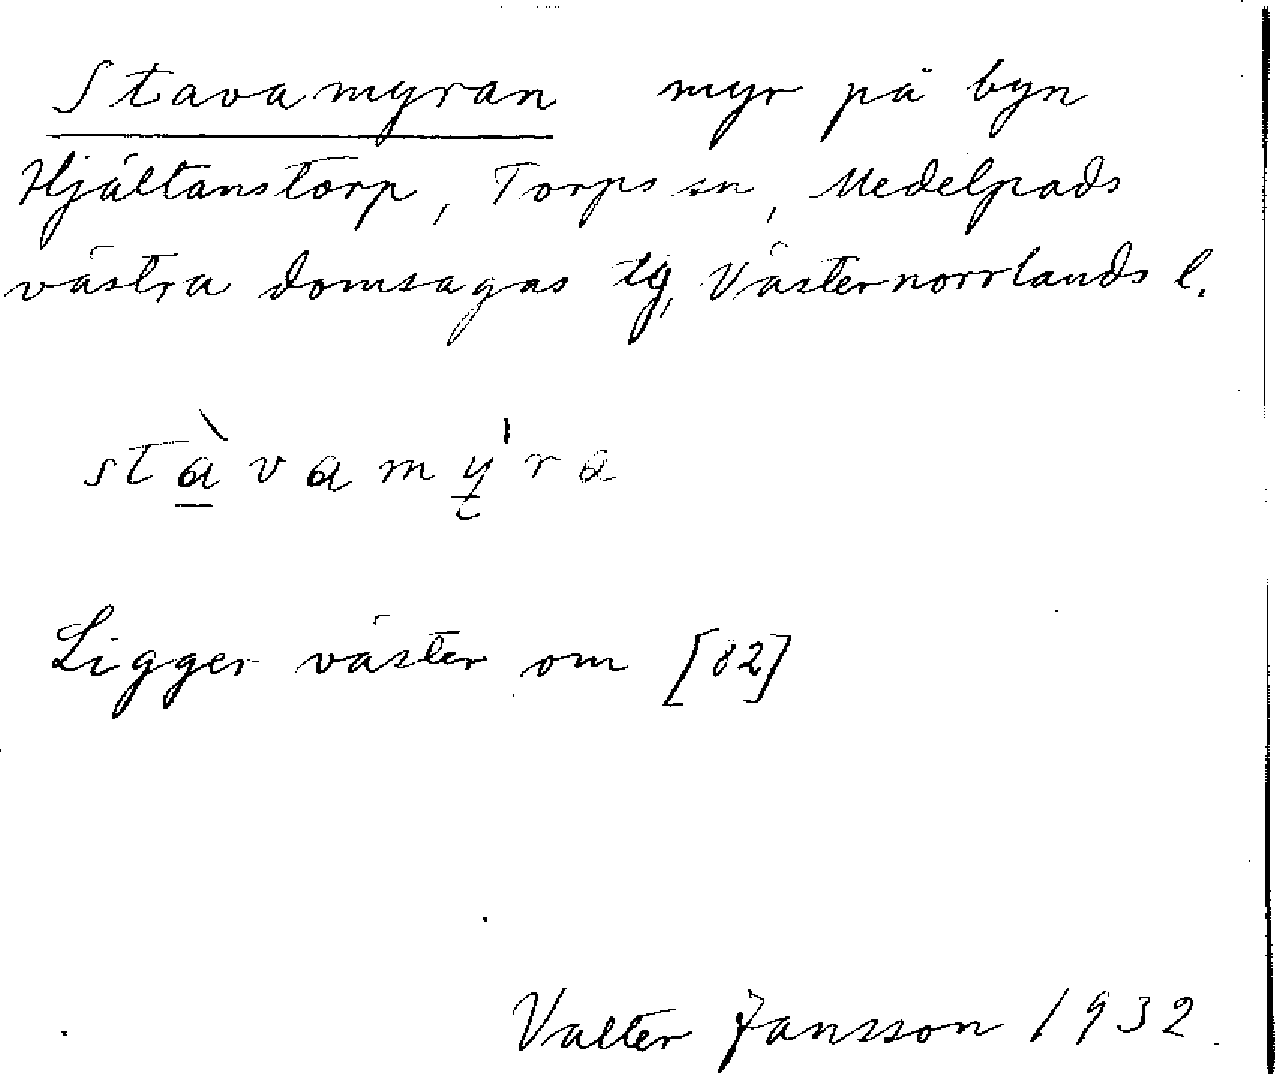 Stavamyran myr på byn
Hjältanstorp, Torps sn, Medelpads
västra domsagas tg, Västernorrlands l.
stàvamy̍ra
Ligger väster om [82]
Valter Jansson 1932.